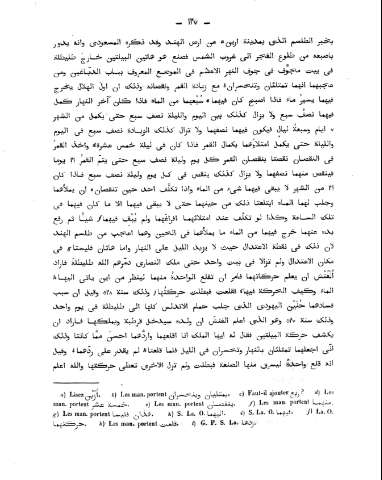 — ١٣٧ —
بخبر الطلسم الذى بمدينة ارين من ارض الهند وقد ذكره المسعودى وانه يدور
باصبعه من طلوع الفجر الى غروب الشمس فصنع هو هاتين البيلتين خارج طليطلة
فى بيت مجوّف فى جوف النهر الاعظم فى الموضع المعروف بباب الدبّاغين ومن
عجيبهما انهما تمتلئان وتنحسران مع زيادة القمر ونقصانه وذلك ان اول الهلال يخرج
فيهما يسير ماء فاذا اصبح كان فيهما سُبْعهما من الماء فاذا كان آخر النهار كمل
فيهما نصف سبع ولا يزال كذلك بين اليوم والليلة نصف سبع حتى يكمل من الشهر
ايام وسبعة ليال فيكون فيهما نصفهما ولا تزال كذلك الزيادة نصف سبع فى اليوم
والليلة حتى يكمل امتلاءهما بكمال القمر فاذا كان فى ليلة خمس عشرة واخذ القمر
فى النقصان نقصتا بنقصان القمر كل يوم وليلة نصف سبع حتى يتم القمر ٢١ يوما
فينقص منهما نصفهما ولا يزال كذلك ينقص فى كل يوم وليلة نصف سبع فاذا كان
٢٩ من الشهر لا يبقى فيهما شىء من الماء واذا تكلّف احد حين تنقصان ان يملأهما
وجلب لهما الماء ابتلعتا ذلك من حينهما حتى لا يبقى فيهما الا ما كان فيهما فى
تلك الساعة وكذا لو تكلّف عند امتلائهما افراغهما ولم يُبق فيهما شيئا ثم رفع
يده عنهما خرج فيهما من الماء ما يملأهما فى الحين وهما اعجب من طلسم الهند
لان ذلك فى نقطة الاعتدال حيث لا يزيد الليل على النهار واما هاتان فليستا فى
مكان الاعتدال ولم تزالا فى بيت واحد حتى ملك النصارى دمّرهم الله طليطلة فاراد
الفنش ان يعلم حركاتهما فامر ان تقلع الواحدة منهما لينظر من اين ياتى اليها
الماء وكيف الحركة فيهما فقلعت فبطلت حركتهما وذلك سنة ٥٢٨ وقيل ان سبب
فسادهما حُنَيْن اليهودى الذى جلب حمام الاندلس كلها الى طليطلة فى يوم واحد
وذلك سنة ٥٢٧ وهو الذى اعلم الفنش ان ولده سيدخل قرطبة ويملكها فاراد ان
يكشف حركة البيلتين فقال له ايها الملك انا اقلعهما واردّهما احسن ممّا كانتا وذلك
انّى اجعلهما تمتلئان بالنهار وتنحسران فى الليل فلما قلعتا لم يقدر على ردّهما وقيل
انه قلع واحدة ليسرق منها الصنعة فبطلت ولم تزل الاخرى تعطى حركتها والله اعلم
a) Lisez أُزَيْن. b) Les man. portent يمتليان وينحسران. c) Faut-il ajouter اربع? d) Les
man. portent خمسة عشر. e) Les man. portent ينقصان. f) Les man. portent منهما.
g) Les man. portent فليسا. h) S. La. O. اليهما. i) S. La. O. فيهما. j) La. O.
حركتهما. k) Les man. portent قلعت. l) G. P. S. La.